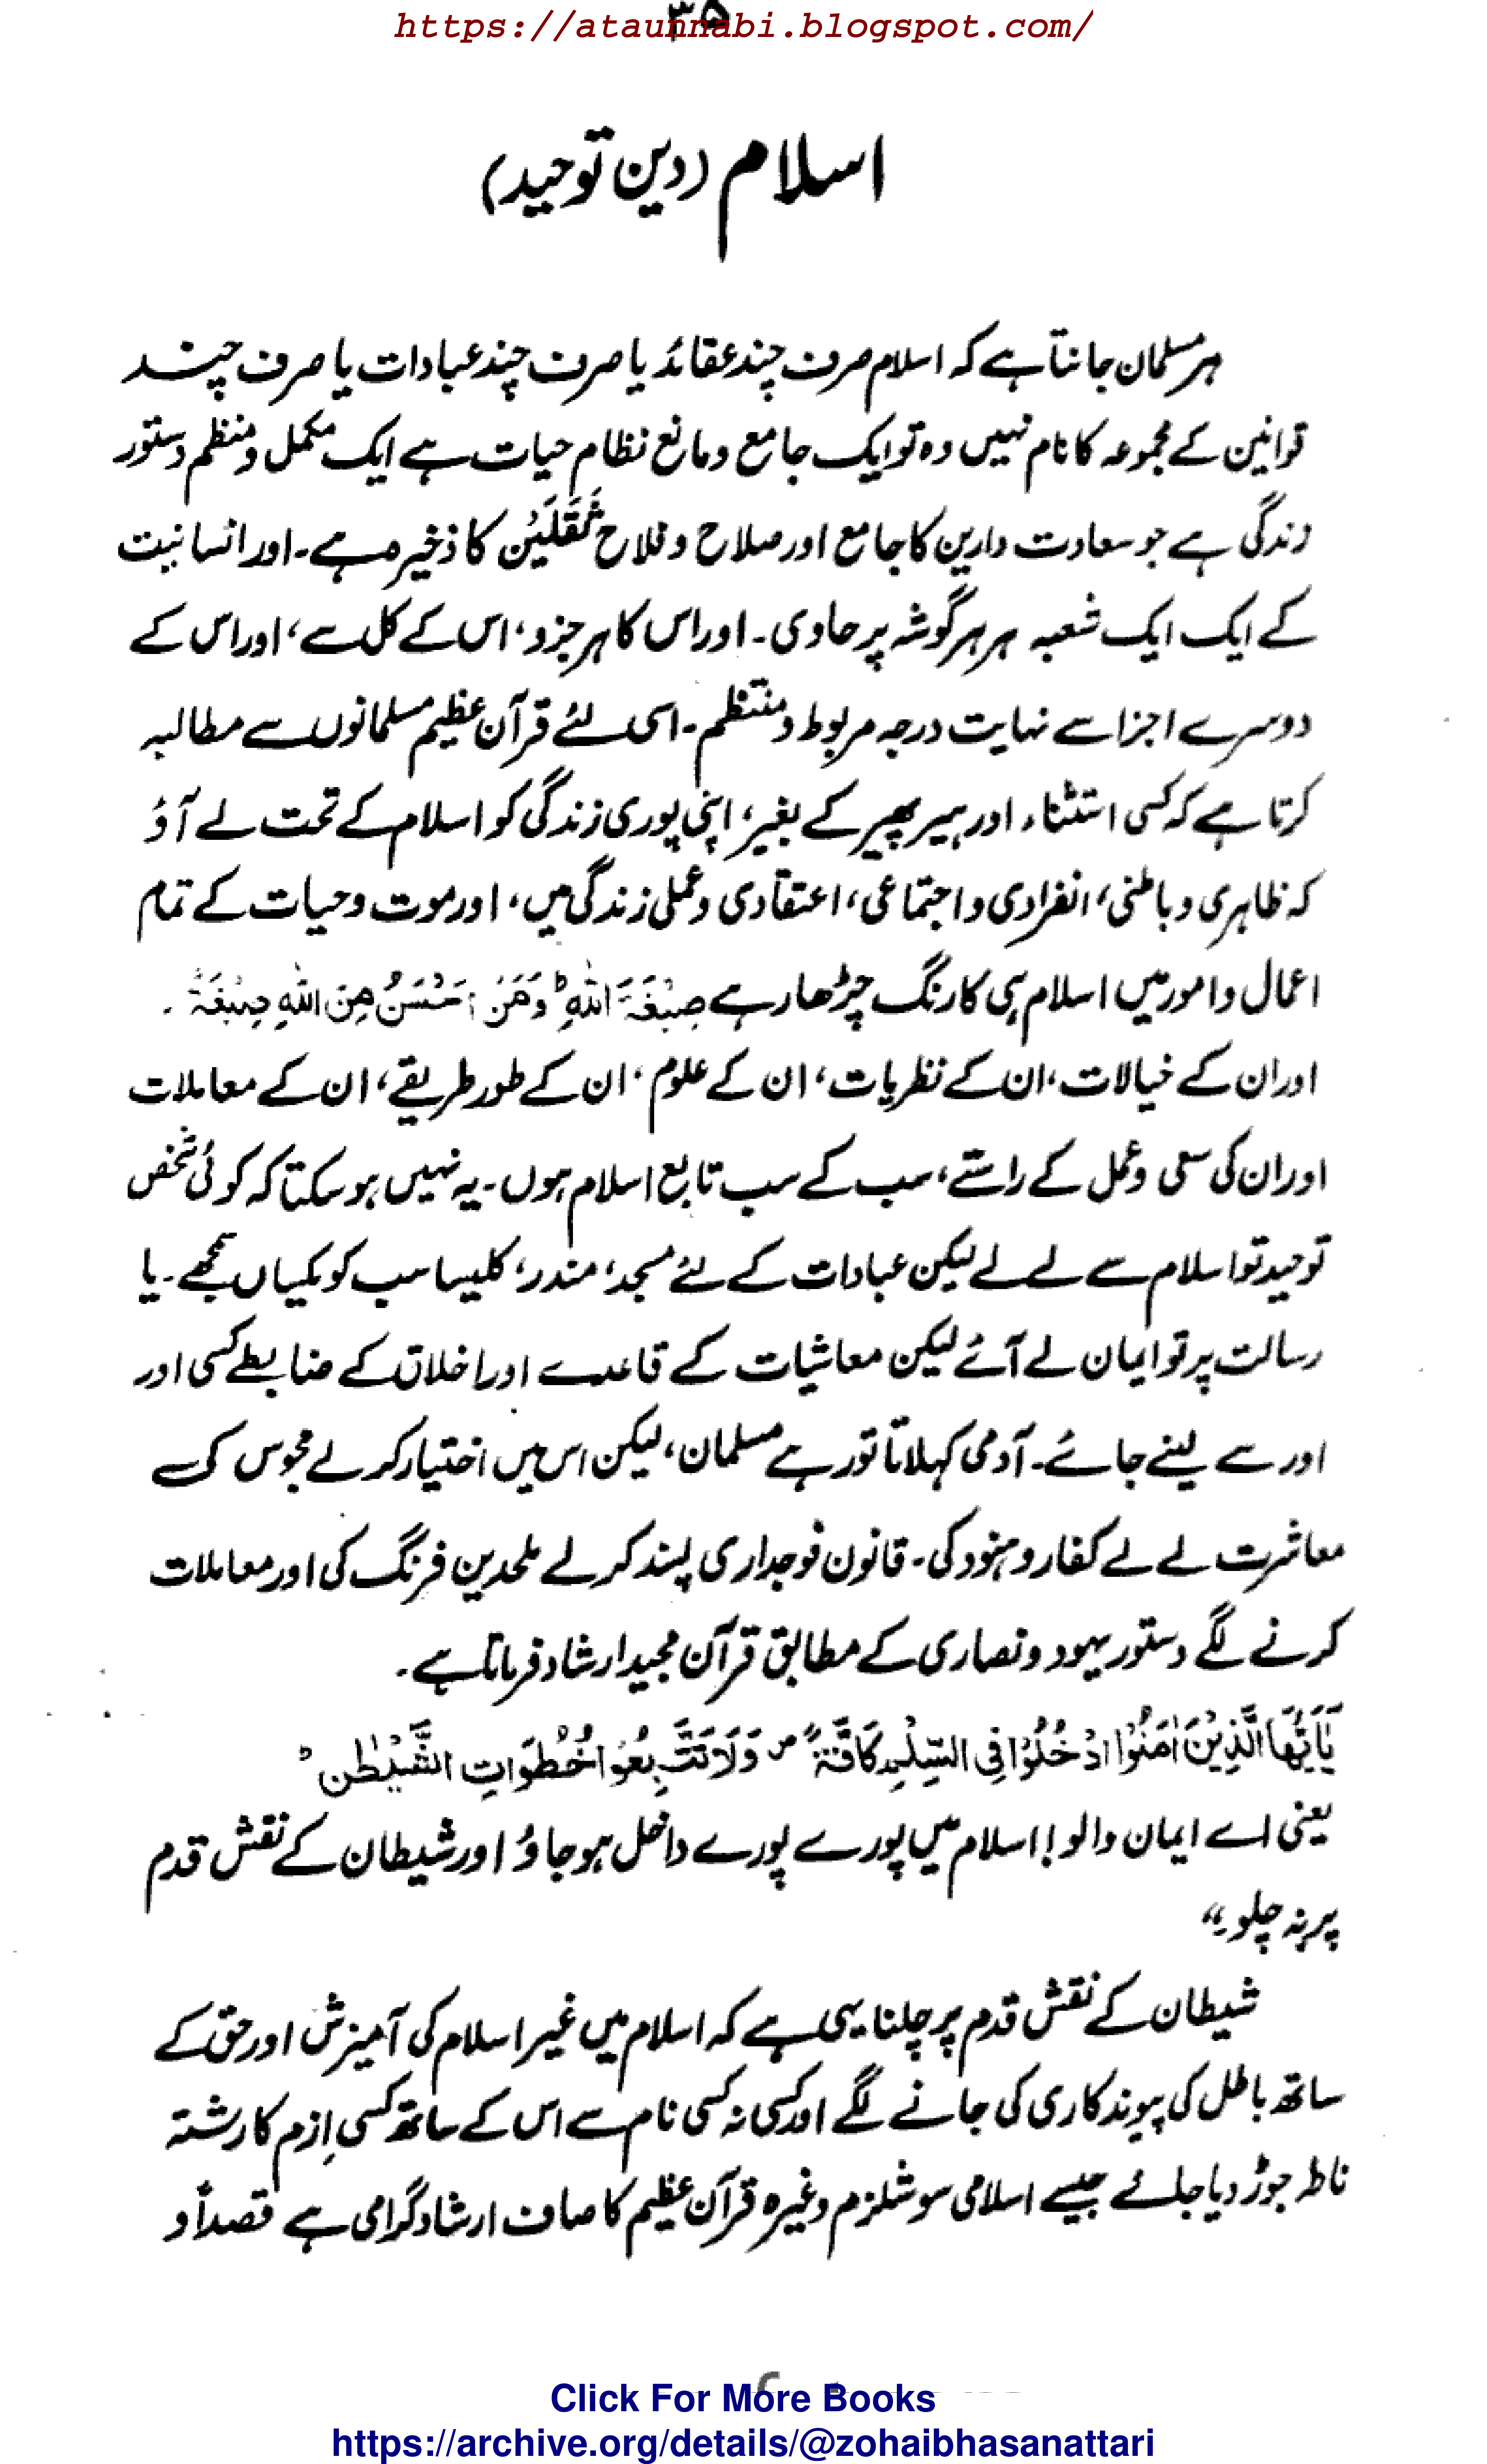 ۳۵
https://ataunnabi.blogspot.com/
اسلام (دین توحید)
ہر مسلمان جانتا ہے کہ اسلام صرف چند عقائد یا صرف چند عبادات یا صرف چند
قوانین کے مجموعہ کا نام نہیں وہ تو ایک جامع و مانع نظام حیات ہے ایک مکمل و منظم دستور
زندگی ہے جو سعادت دارین کا جامع اور صلاح و فلاح ثَقَلَیْن کا ذخیرہ ہے۔ اور انسانیت
کے ایک ایک شعبہ ہر ہر گوشہ پر حاوی۔ اور اس کا ہر جزو، اس کے کل سے، اور اس کے
دوسرے اجزا سے نہایت درجہ مربوط و منتظم۔ اسی لئے قرآن عظیم مسلمانوں سے مطالبہ
کرتا ہے کہ کسی استثناء اور ہیر پھیر کے بغیر، اپنی پوری زندگی کو اسلام کے تحت لے آؤ
کہ ظاہری و باطنی، انفرادی و اجتماعی، اعتقادی و عملی زندگی میں، اور موت و حیات کے تمام
اعمال و امور میں اسلام ہی کا رنگ چڑھا رہے صِبْغَةَ اللّٰهِ ؕ وَمَنْ اَحْسَنُ مِنَ اللّٰهِ صِبْغَةً ۔
اور ان کے خیالات، ان کے نظریات، ان کے علوم، ان کے طور طریقے، ان کے معاملات
اور ان کی سعی و عمل کے راستے، سب کے سب تابع اسلام ہوں۔ یہ نہیں ہو سکتا کہ کوئی شخص
توحید تو اسلام سے لے لے لیکن عبادات کے لئے مسجد، مندر، کلیسا سب کو یکساں سمجھے۔ یا
رسالت پر تو ایمان لے آئے لیکن معاشیات کے قاعدے اور اخلاق کے ضابطے کسی اور
اور سے لینے جائے۔ آدمی کہلاتا تو رہے مسلمان، لیکن اس میں اختیار کر لے مجوس کی
معاشرت لے لے کفار و ہنود کی۔ قانون فوجداری پسند کر لے ملحدین فرنگ کی اور معاملات
کرنے لگے دستور یہود و نصاری کے مطابق قرآن مجید ارشاد فرماتا ہے۔
یٰۤاَیُّهَا الَّذِیْنَ اٰمَنُوا ادْخُلُوْا فِی السِّلْمِ كَآفَّةً ۪ وَلَا تَتَّبِعُوْا خُطُوٰتِ الشَّیْطٰنِ ؕ
یعنی اے ایمان والو! اسلام میں پورے پورے داخل ہو جاؤ اور شیطان کے نقش قدم
پر نہ چلو۔“
شیطان کے نقش قدم پر چلنا یہی ہے کہ اسلام میں غیر اسلام کی آمیزش اور حق کے
ساتھ باطل کی پیوند کاری کی جانے لگے اور کسی نہ کسی نام سے اس کے ساتھ کسی اِزم کا رشتہ
ناطہ جوڑ دیا جائے جیسے اسلامی سوشلزم وغیرہ قرآن عظیم کا صاف ارشاد گرامی ہے قصداً و
Click For More Books
https://archive.org/details/@zohaibhasanattari